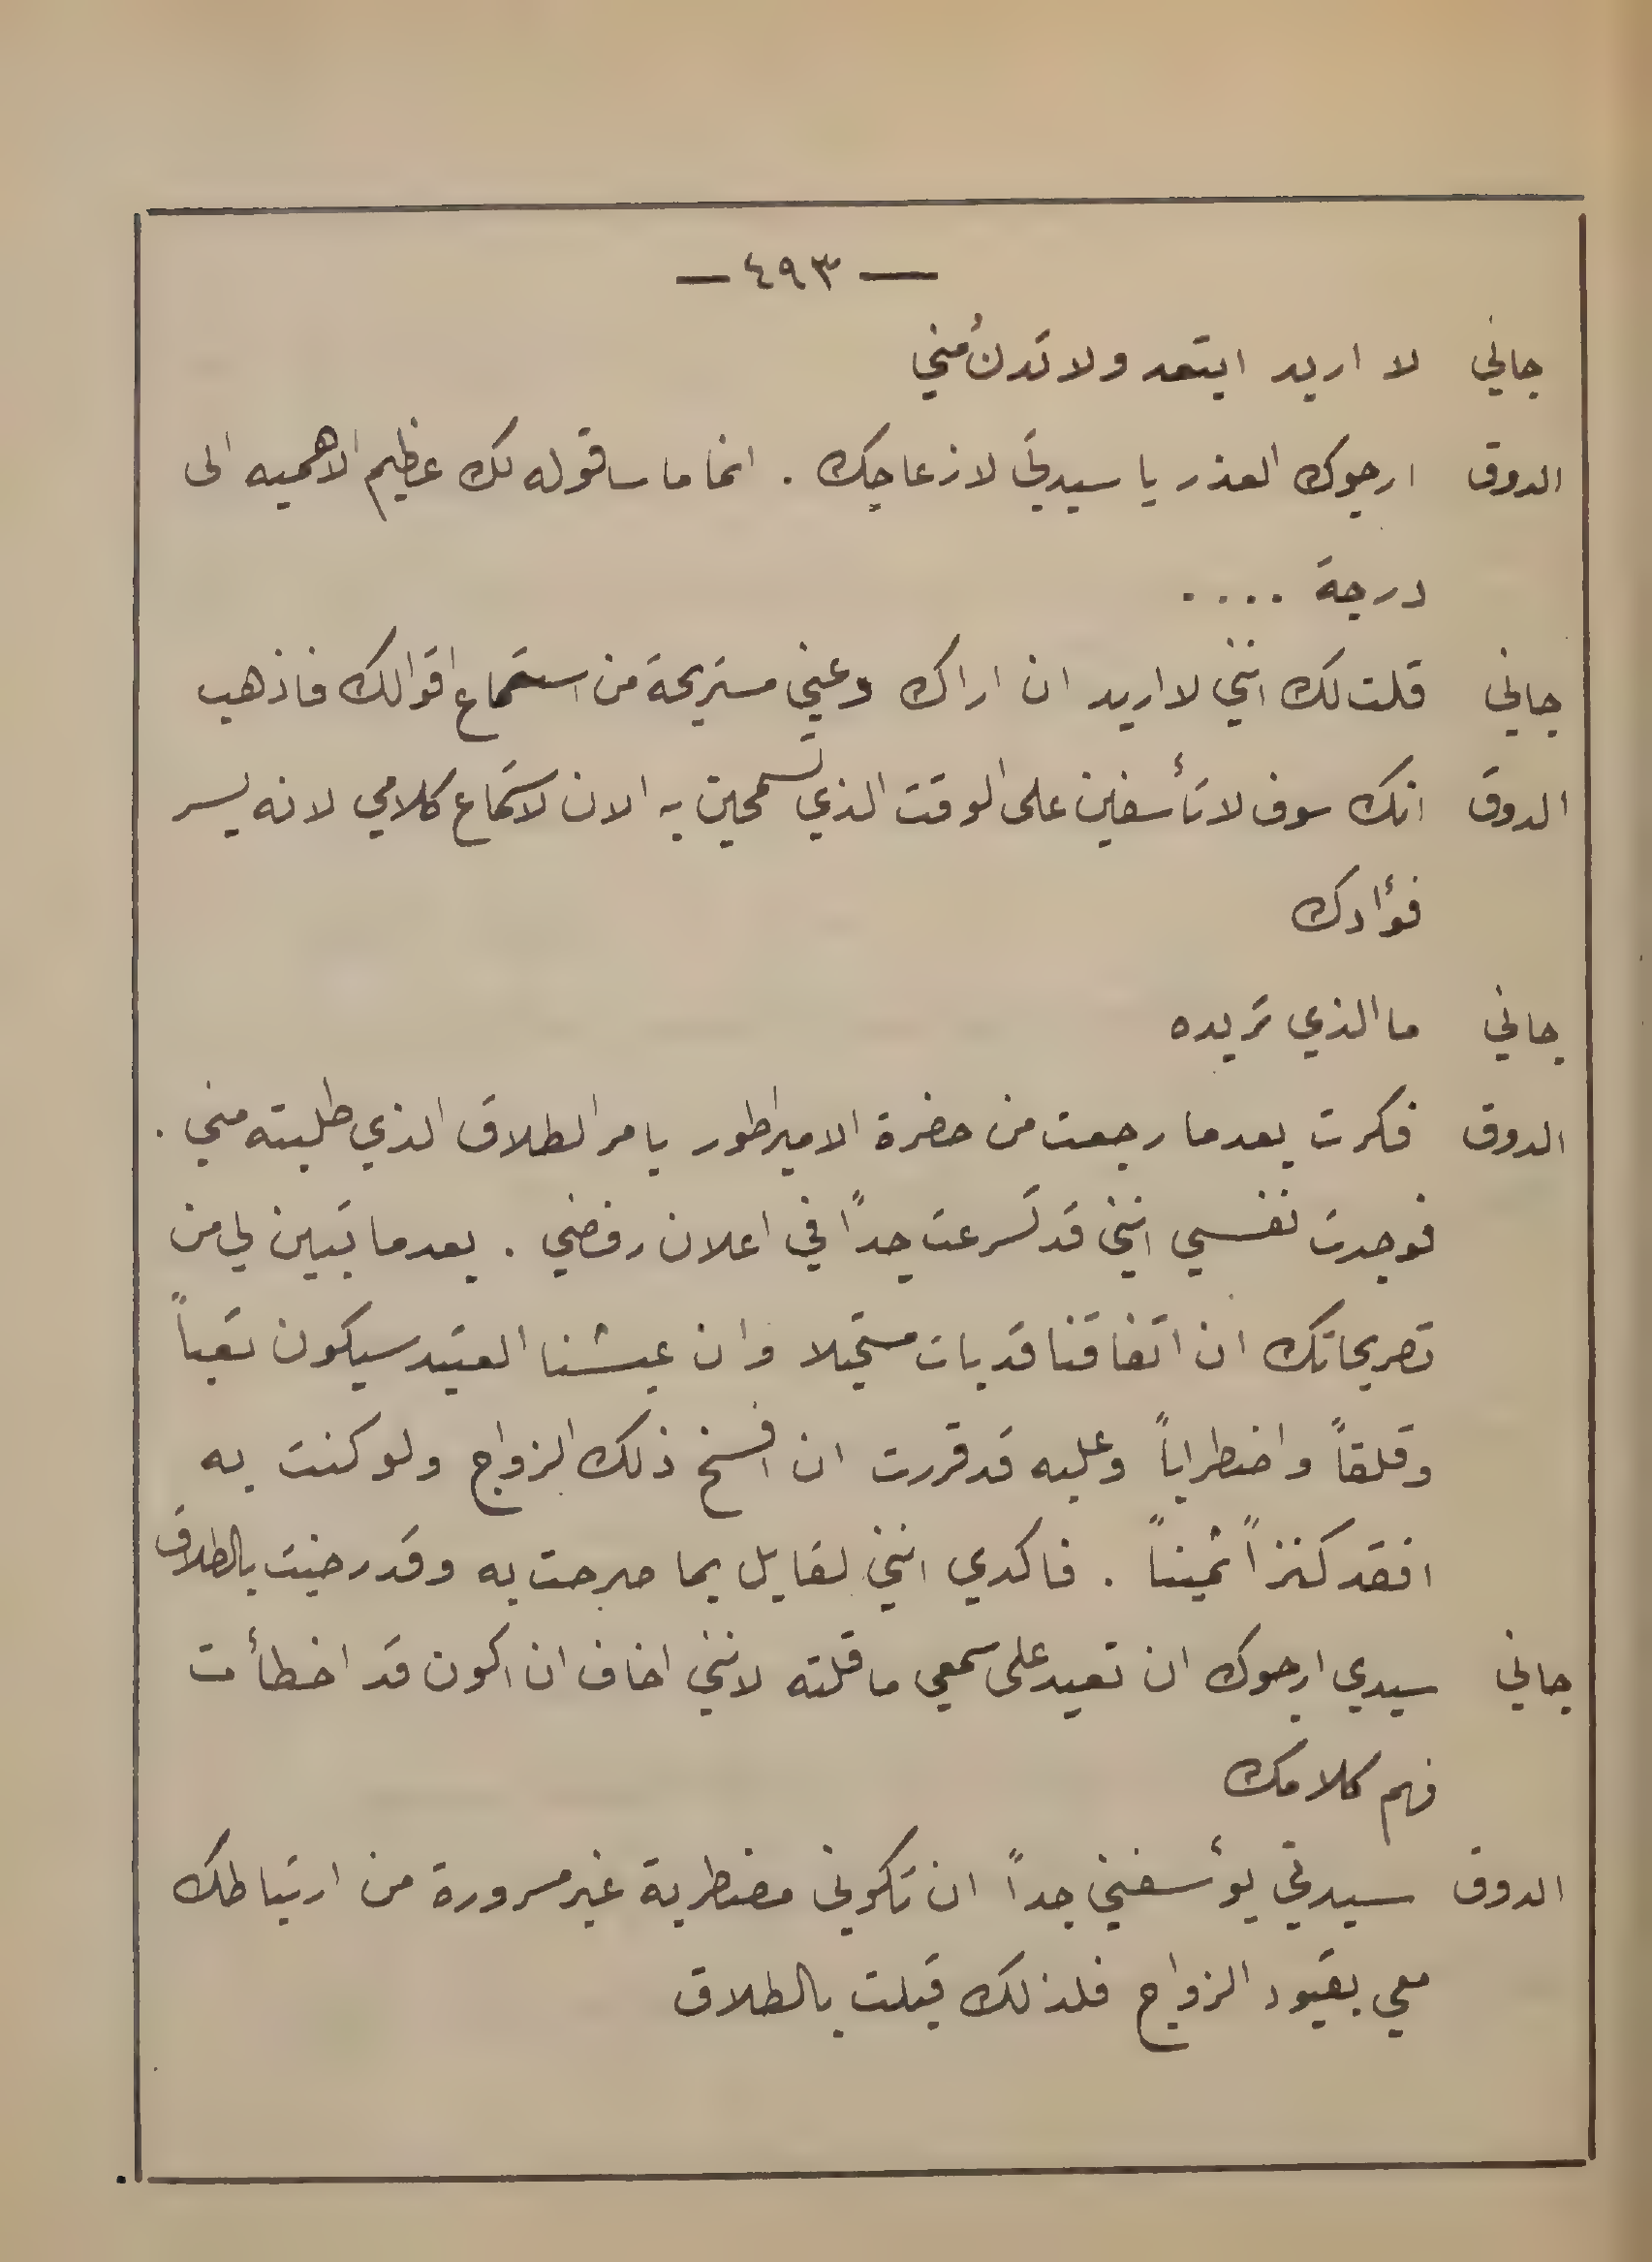 — ٤٩٣ —
جاني لا اريد ابتعد ولا تدنُ مني
الدوق ارجوك العذر يا سيدتي لازعاجك . انما ما ساقوله لك عظيم الاهميه الى
درجة ....
جاني قلت لك انني لا اريد ان اراك دعني مستريحة من استماع اقوالك فاذهب
الدوق انك سوف لا تأسفين على الوقت الذي تسمحين به الان لاستماع كلامي لانه يسر
فؤادك
جاني ما الذي تريده
الدوق فكرت بعدما رجعت من حضرة الامبراطور بامر الطلاق الذي طلبته مني .
فوجدت نفسي انني قد تسرعت جداً في اعلان رفضي . بعدما تبين لي من
تصريحاتك ان اتفاقنا قد بات مستحيلا وان عيشنا العتيد سيكون تعباً
وقلقاً واضطراباً وعليه قد قررت ان افسخ ذلك الزواج ولو كنت به
افقد كنزاً ثميناً . فاكدي انني لقابل بما صرحت به وقد رضيت بالطلاق
جاني سيدي ارجوك ان تعيد على سمعي ما قلته لانني اخاف ان اكون قد اخطأت
فهم كلامك
الدوق سيدتي يؤسفني جداً ان تكوني مضطربة غير مسرورة من ارتباطك
معي بقيود الزواج فلذلك قبلت بالطلاق